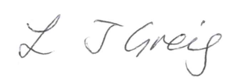 L J Greig